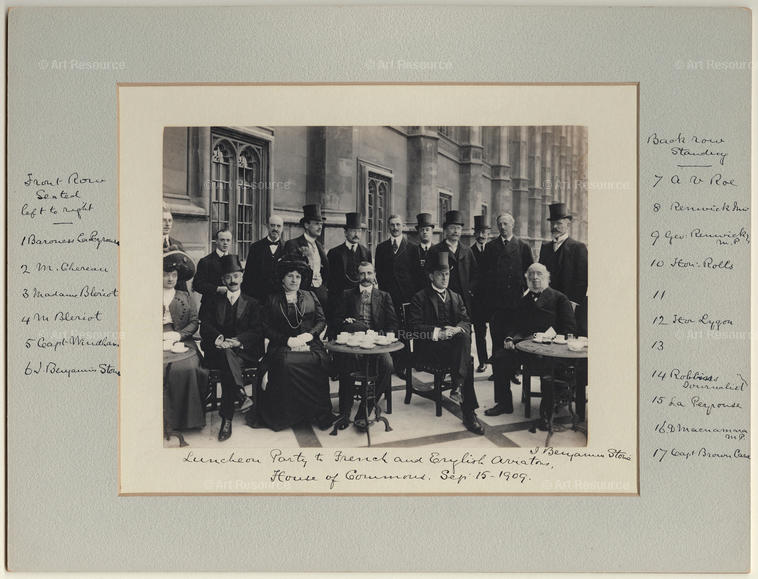 Front Row
Seated
left to right
1 Baroness
2 M. Chereau
3 Madame Bleriot
4 M Bleriot
5 Capt Windham
6 J. Benjamin Stone
Back row
Standing
7 A V Roe
8 Renwick Jnr
9 Geo. Renwick
M.P.
10 Hon: Rolls
11
12 Hon Lygon
13
14 Robbins
Journalist
15 La Peyrouse
16 D Macnamara
M.P.
17 Capt Brown Cave
J Benjamin Stone
Luncheon Party to French and English Aviators,
House of Commons. Sep 15-1909.
© Art Resource
© Art Resource
© Art Resource
© Art Resource
© Art Resource
© Art Resource
© Art Resource
© Art Resource
© Art Resource
© Art Resource
© Art Resource
© Art Resource